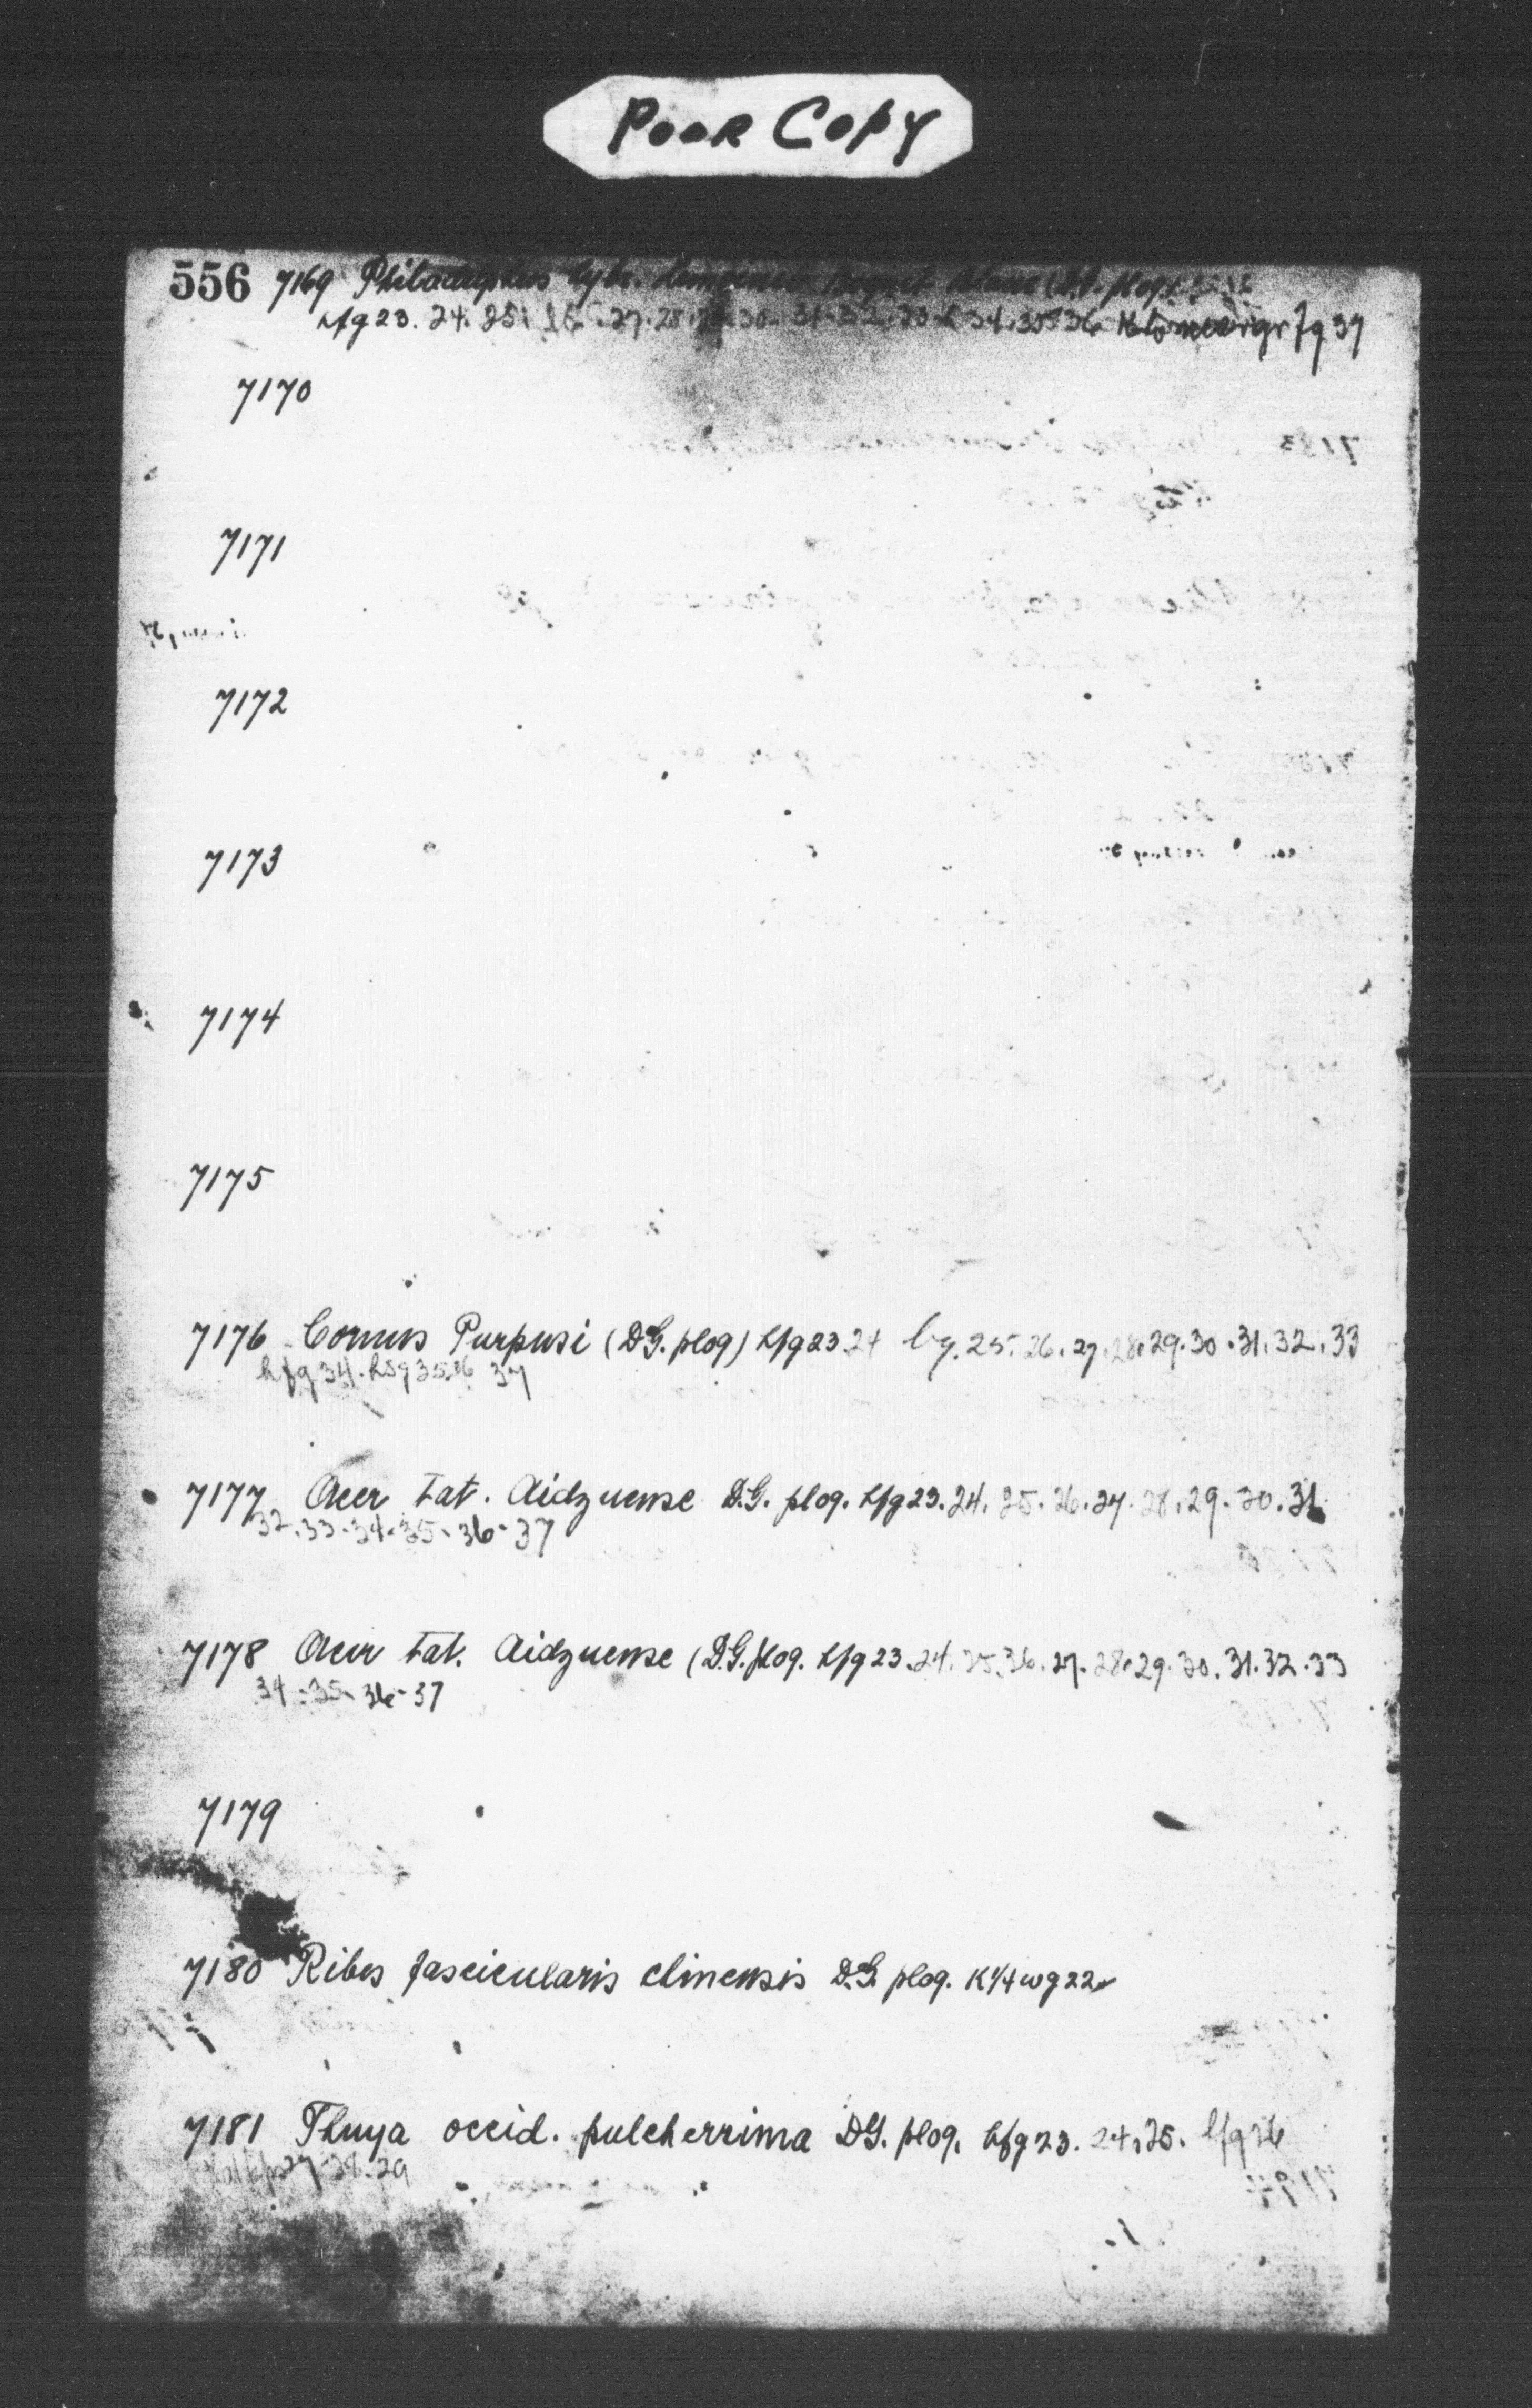 Poor Copy
556 7169 Philadelphus hyb. Lemoinei Bouquet Blanc
Kfg 23. 24. 25. 26. 27. 28. 29. 30. 31. 32. 33. 34. 35. 36 37
7170
7171
7172
7173
7174
7175
7176 Cornus Purpusi (D.G. plog) Kfg 23 24 lg. 25. 26. 27. 28. 29. 30. 31. 32. 33
hfg 34. hsg 35 36 37
7177 Acer tat. Aidzuense D.G. plog. Kfg 23. 24. 25. 26. 27. 28. 29. 30. 31
32. 33. 34. 35. 36. 37
7178 Acer tat. Aidzuense (D.G. plog. Kfg 23. 24. 25. 26. 27. 28. 29. 30. 31. 32. 33
34. 35. 36. 37
7179
7180 Ribes fascicularis chinensis D.G. plog. K1/4wg22
7181 Thuya occid. pulcherrima DG. plog. Kfg 23. 24. 25. lfg 26
27. 28. 29